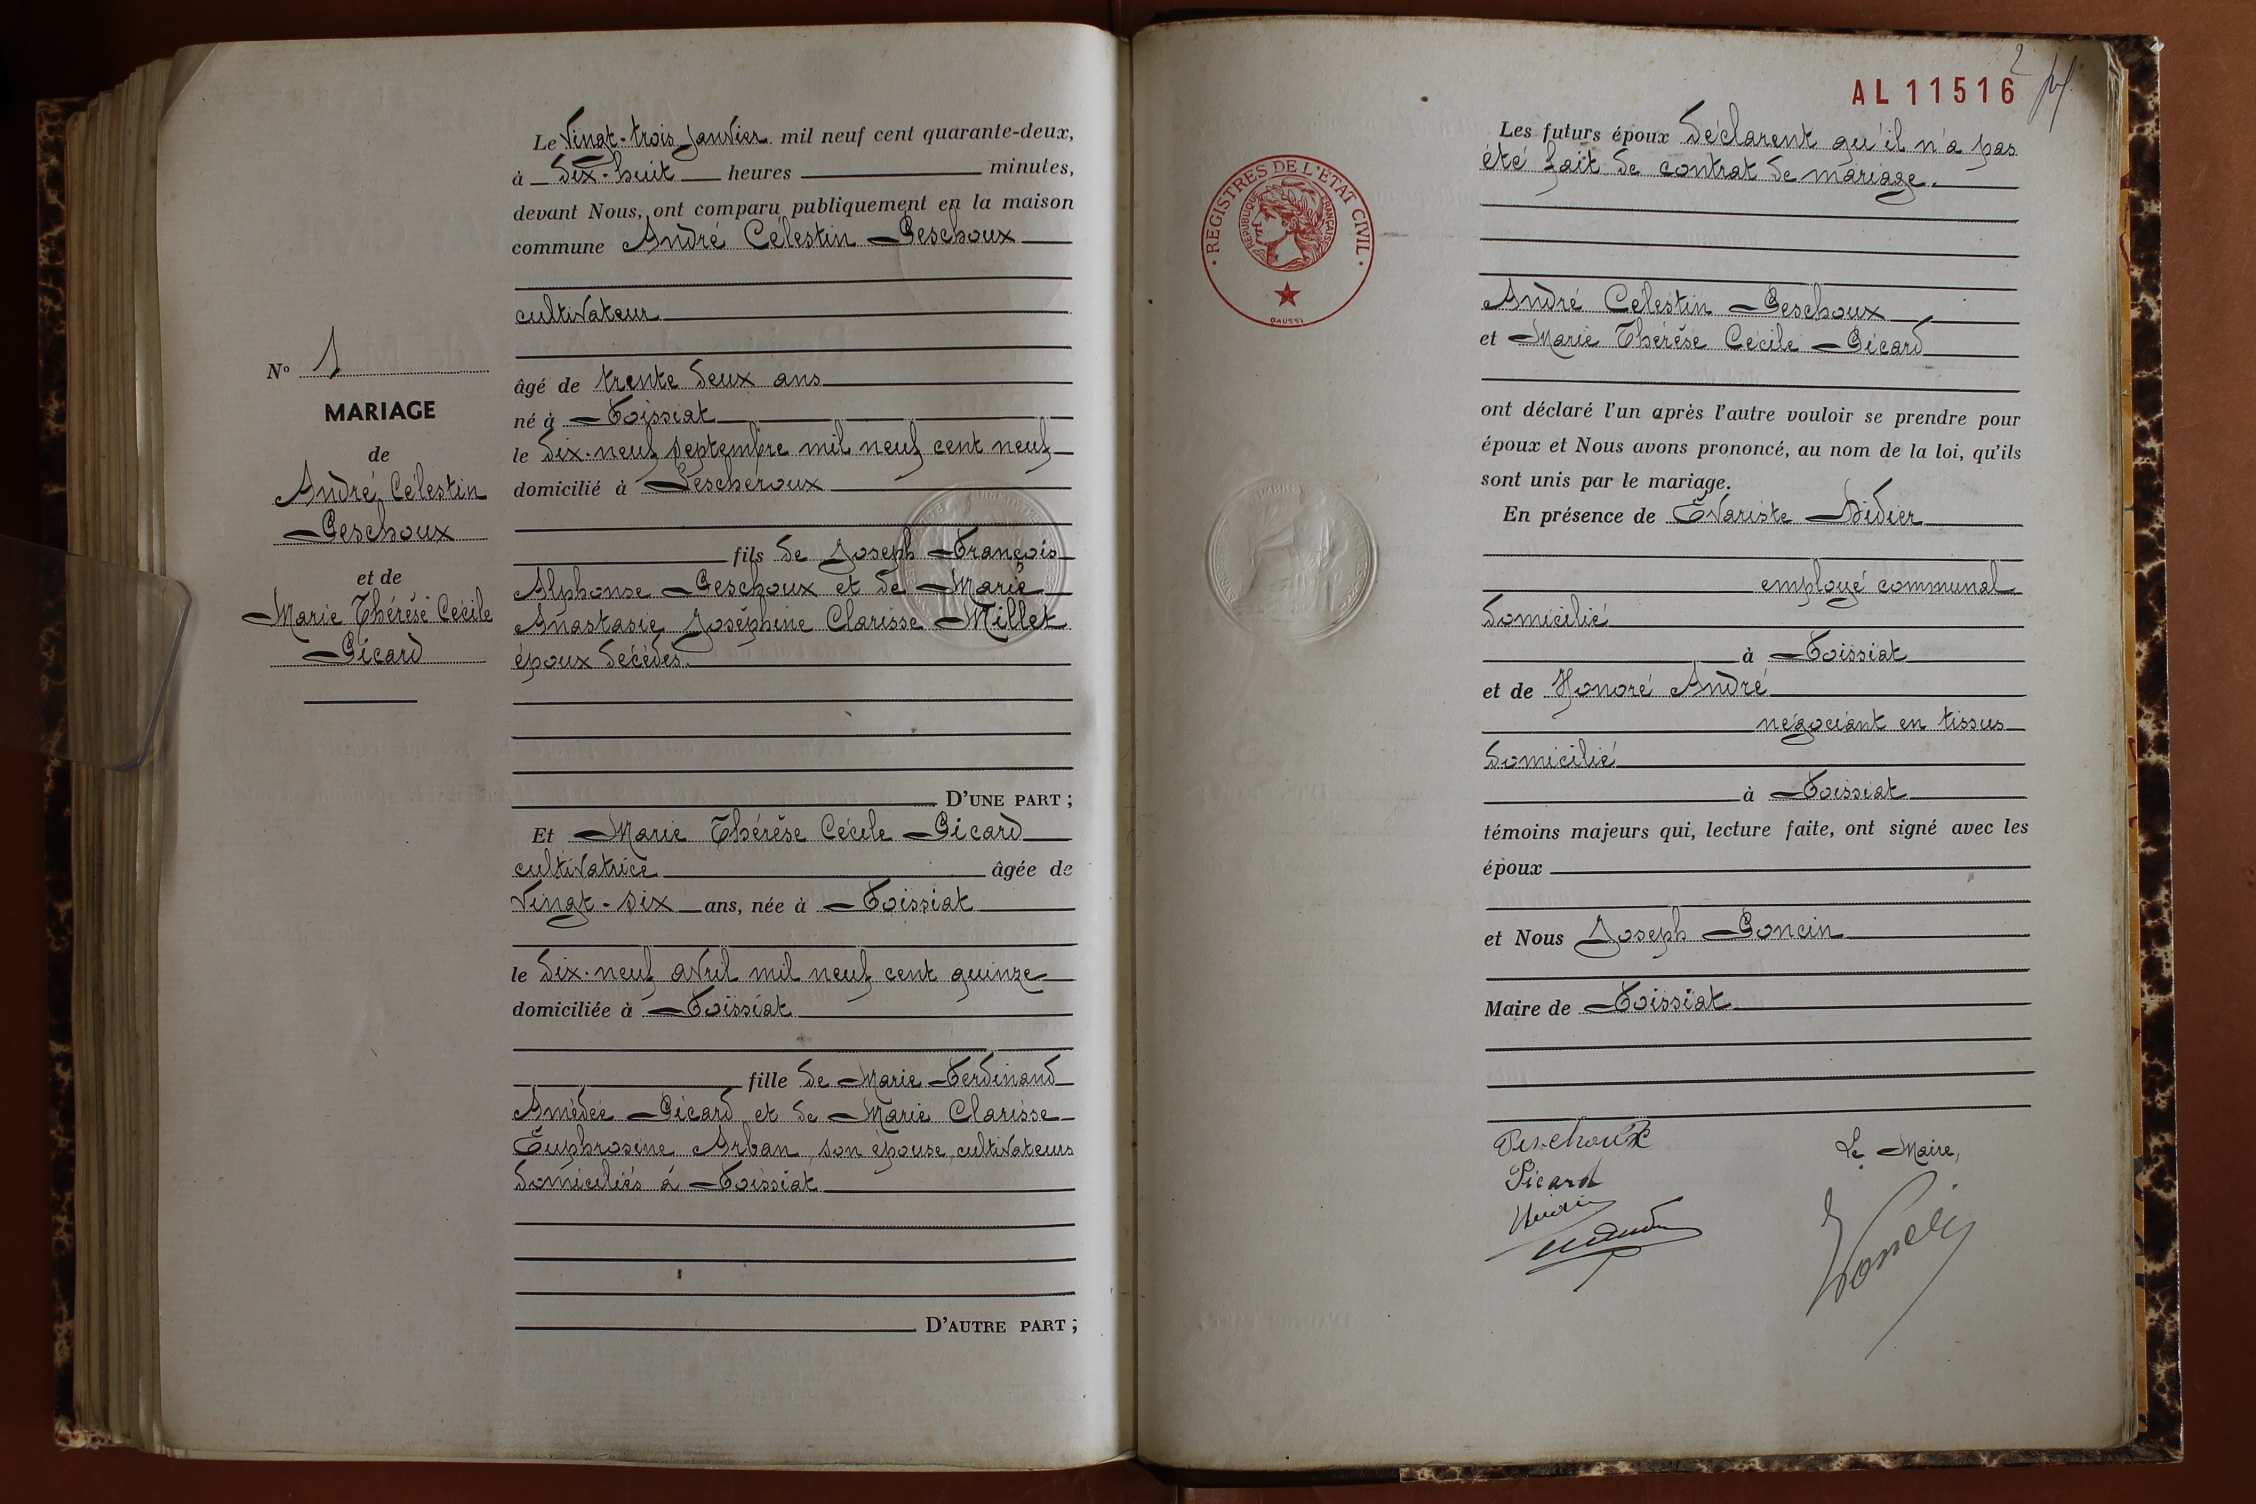 Le Vingt-trois janvier mil neuf cent quarante-deux,
à dix-huit heures minutes,
devant Nous, ont comparu publiquement en la maison
commune André Célestin Peschoux
cultivateur
âgé de trente deux ans
né à Foissiat
le dix-neuf septembre mil neuf cent neuf
domicilié à Lescheroux
fils de Joseph François
Alphonse Peschoux et de Marie
Anastasie Joséphine Clarisse Millet
époux décédés.
D'UNE PART ;
Et Marie Thérèse Cécile Picard
cultivatrice âgée de
Vingt-six ans, née à Foissiat
le dix-neuf avril mil neuf cent quinze
domiciliée à Foissiat
fille de Marie Ferdinand
Amédée Picard et de Marie Clarisse
Euphrosine Arban, son épouse, cultivateurs
domiciliés à Foissiat
D'AUTRE PART ;
N° 1
MARIAGE
de
André Célestin
Peschoux
et de
Marie Thérèse Cécile
Picard
2
AL 11516
REGISTRES DE L'ETAT CIVIL
REPUBLIQUE FRANÇAISE
Les futurs époux déclarent qu'il n'a pas
été fait de contrat de mariage.
André Célestin Peschoux
et Marie Thérèse Cécile Picard
ont déclaré l'un après l'autre vouloir se prendre pour
époux et Nous avons prononcé, au nom de la loi, qu'ils
sont unis par le mariage.
En présence de Evariste Didier
employé communal
domicilié
à Foissiat
et de Honoré André
négociant en tissus
domicilié
à Foissiat
témoins majeurs qui, lecture faite, ont signé avec les
époux
et Nous Joseph Poncin
Maire de Foissiat
Peschoux
Picard
Le Maire,
Poncin